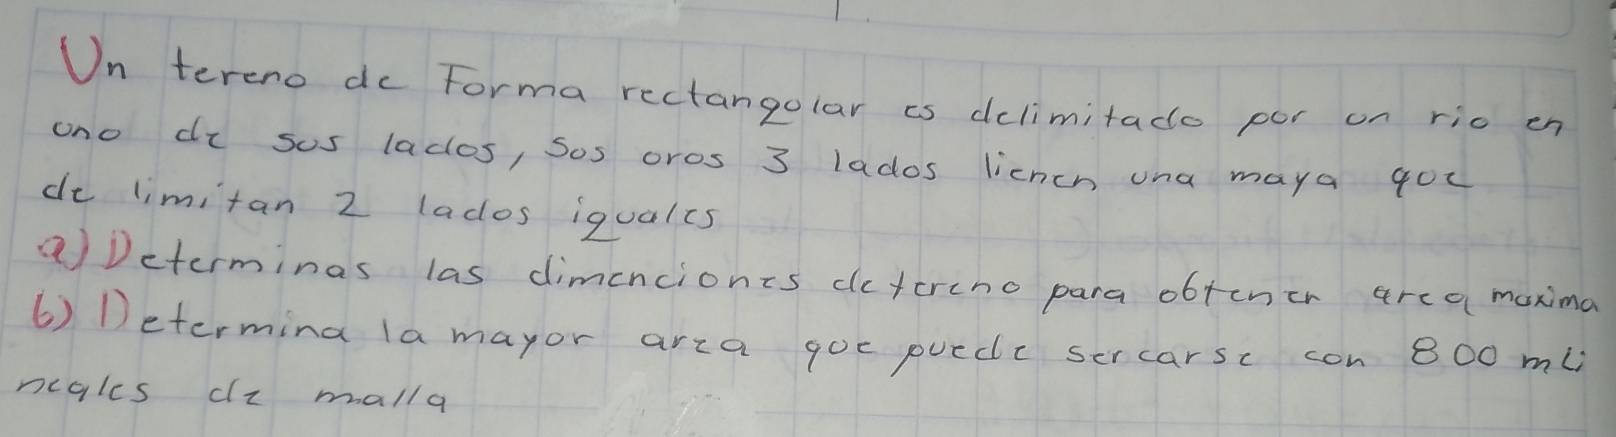 Un tereno de Forma rectangolar es delimitado por on rio en
ono de sos lados, sos oros 3 lados lienen una maya qoe
de limitan 2 lados iguales
a) Determinas las dimenciones detereno para obtener area maxima
b) Determina la mayor area qoe puede sercarse con 800 mli
neales de malla